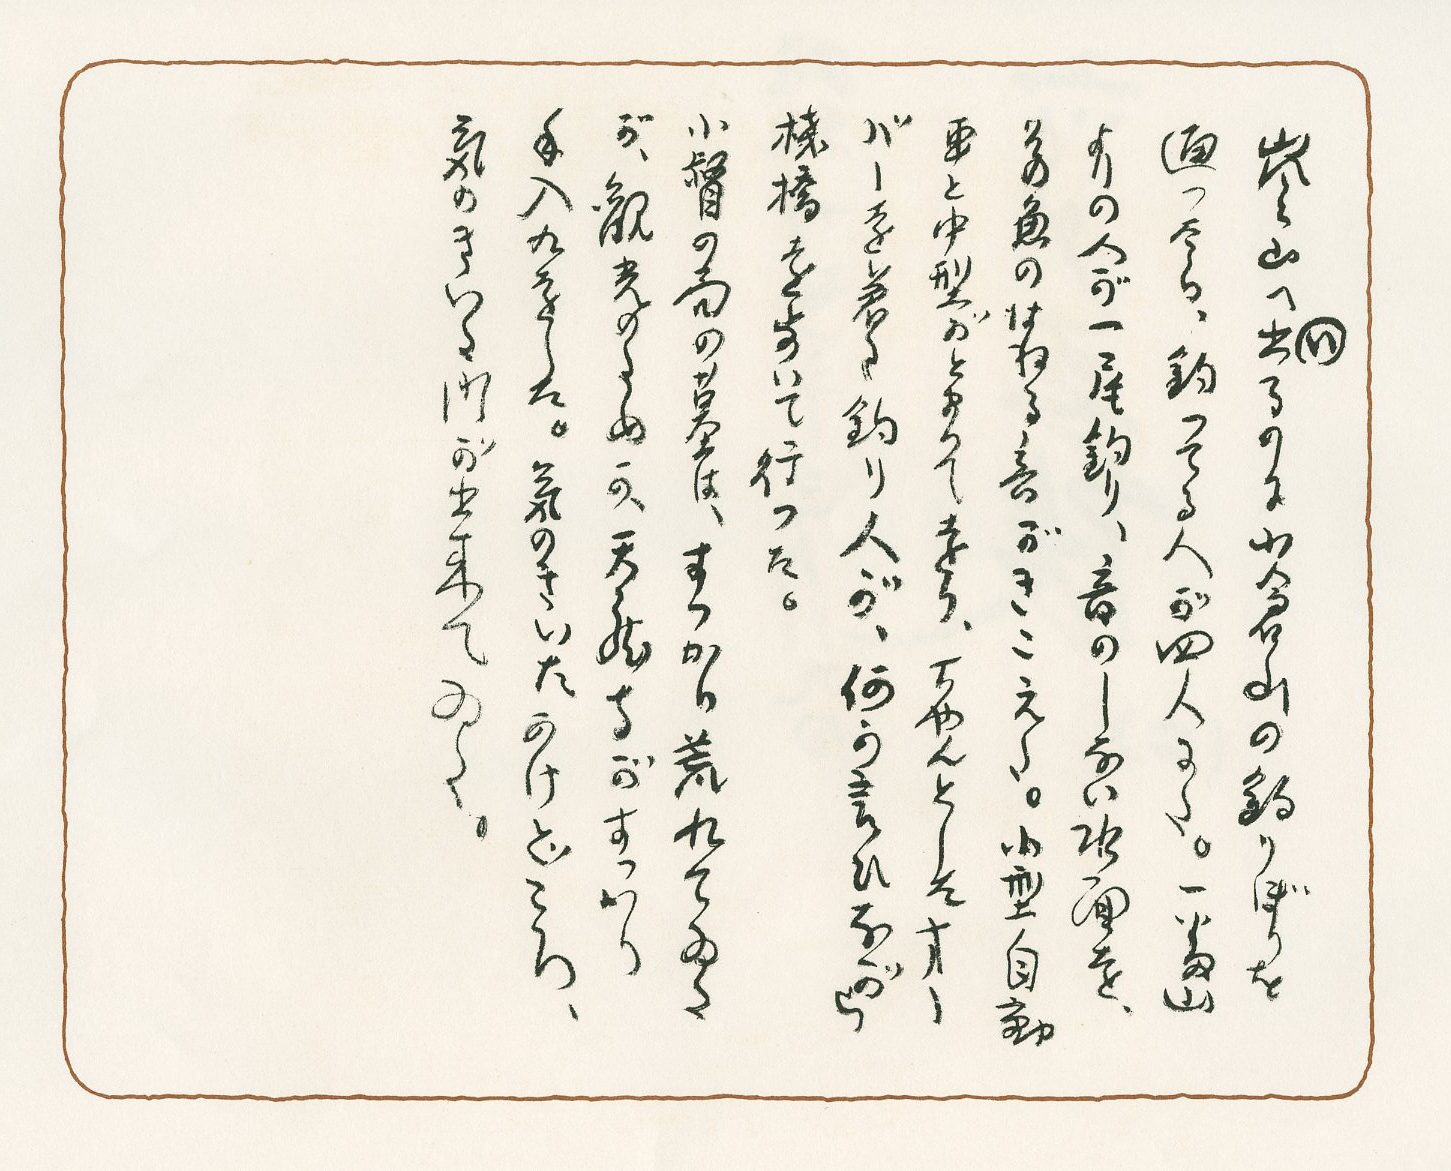 嵐山へ出るのに小倉山の釣りぼりを
通ったら、釣ってる人が四人ゐた。一番山
よりの人が一尾釣り、音のしない水面を、
その魚のはねる音がきこえた。小型自動
車と中型がとまってをり、ちやんとしたオー
バーを着た釣り人が、何か言ひながら
棧橋を歩いて行つた。
小督の局の墓は、すつかり荒れてゐた
が、観光のためか、天龍寺がすつかり
手入れをした。気のきいたかけどころ、
気のきいた門が出来てゐた。